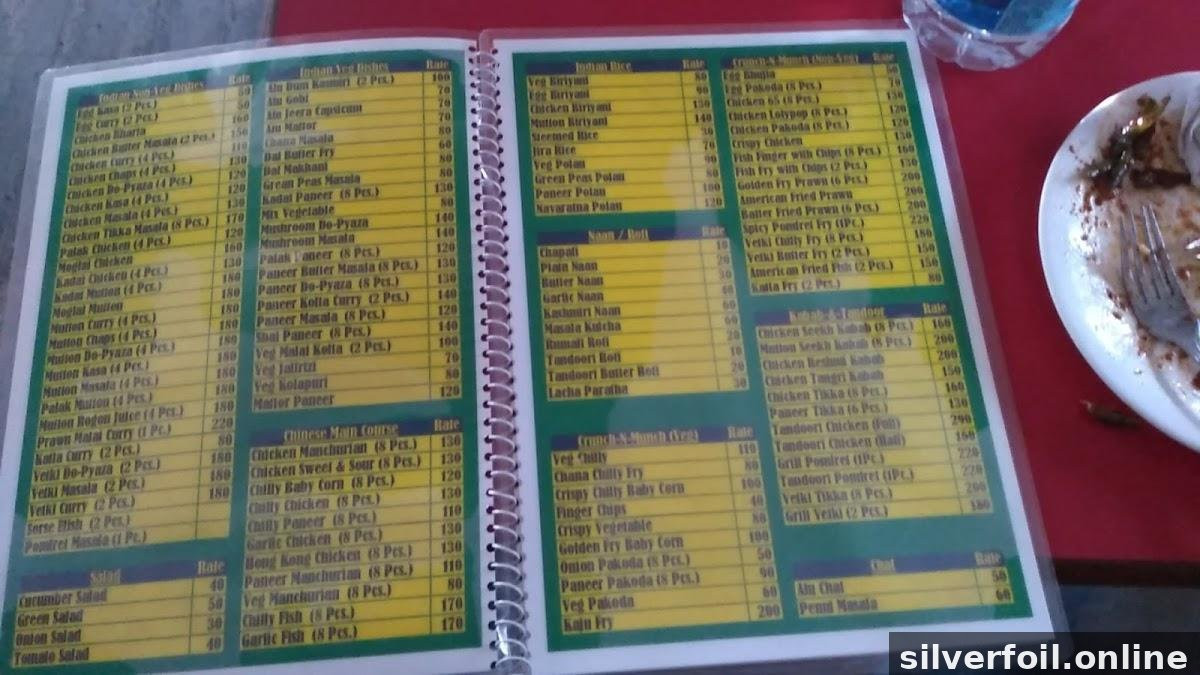 Indian Non-Veg Dishes Rate
Egg Kasa (2 Pcs.) 50
Egg Curry (2 Pcs.) 50
Chicken Bharta 160
Chicken Butter Masala (2 Pcs.) 150
Chicken Curry (4 Pcs.) 110
Chicken Chaps (4 Pcs.) 130
Chicken Do-Pyaza (4 Pcs.) 120
Chicken Kasa (4 Pcs.) 120
Chicken Masala (4 Pcs.) 130
Chicken Tikka Masala (8 Pcs.) 170
Palak Chicken (4 Pcs.) 120
Moglai Chicken 160
Kadai Chicken (4 Pcs.) 130
Kadai Mutton (4 Pcs.) 180
Moglai Mutton 180
Mutton Curry (4 Pcs.) 180
Mutton Chaps (4 Pcs.) 180
Mutton Do-Pyaza (4 Pcs.) 180
Mutton Kasa (4 Pcs.) 180
Mutton Masala (4 Pcs.) 180
Palak Mutton (4 Pcs.) 180
Mutton Rogon Juice (4 Pcs.) 180
Prawn Malai Curry (1 Pc.) 220
Katla Curry (2 Pc.) 80
Vetki Do-Pyaza (2 Pc.) 180
Vetki Masala (2 Pc.) 180
Vetki Curry (2 Pc.) 180
Sorse Ilish (2 Pc.)
Pomfret Masala (1 Pc.)
Salad Rate
Cucumber Salad 40
Green Salad 50
Onion Salad 30
Tomato Salad 40
Indian Veg Dishes Rate
Alu Dum Kasmiri (2 Pc.) 100
Alu Gobi 70
Alu Jeera Capsicum 70
Alu Mattor 70
Chana Masala 80
Dal Butter Fry 60
Dal Makhani 80
Grean Peas Masala 80
Kadai Paneer (8 Pcs.) 130
Mix Vegetable 80
Mushroom Do-Pyaza 140
Mushroom Masala 140
Palak Paneer (8 Pcs.) 120
Paneer Butter Masala (8 Pcs.) 130
Paneer Do-Pyaza (8 Pcs.) 120
Paneer Kofta Curry (2 Pcs.) 140
Paneer Masala (8 Pcs.) 120
Shai Paneer (8 Pcs.) 140
Veg Malai Kofta (2 Pcs.) 100
Veg Jalfrizi 70
Veg Kolapuri 80
Mattor Paneer 120
Chinese Main Course Rate
Chicken Manchurian (8 Pcs.) 130
Chicken Sweet & Sour (8 Pcs.) 130
Chilly Baby Corn (8 Pcs.) 120
Chilly Chicken (8 Pcs.) 130
Chilly Paneer (8 Pcs.) 110
Garlic Chicken (8 Pcs.) 130
Hong Kong Chicken (8 Pcs.) 130
Paneer Manchurian (8 Pcs.) 110
Veg Manchurian (8 Pcs.) 80
Chilly Fish (8 Pcs.) 170
Garlic Fish (8 Pcs.) 170
Indian Rice Rate
Veg Biriyani 80
Egg Biriyani 90
Chicken Biriyani 130
Mutton Biriyani 140
Steemed Rice 30
Jira Rice 70
Veg Polau 90
Green Peas Polau 80
Paneer Polau 100
Navaratna Polau 120
Naan / Roti Rate
Chapati
Plain Naan
Butter Naan
Garlic Naan
Kashmiri Naan
Masala Kulcha
Rumali Roti
Tandoori Roti
Tandoori Butter Roti 20
Lacha Paratha 30
Crunch-N-Munch (Veg) Rate
Veg Chilly 110
Chana Chilly Fry 80
Crispy Chilly Baby Corn 100
Finger Chips 40
Crispy Vegetable 80
Golden Fry Baby Corn 100
Onion Pakoda (8 Pcs.) 50
Paneer Pakoda (8 Pcs.) 90
Veg Pakoda 60
Kaju Fry 200
Crunch-N-Munch (Non-Veg) Rate
Egg Bhujia
Egg Pakoda (8 Pcs.) 70
Chicken 65 (8 Pcs.) 130
Chicken Lolypop (8 Pcs.)
Chicken Pakoda (8 Pcs.) 120
Crispy Chicken 130
Fish Finger with Chips (8 Pcs.) 160
Fish Fry with Chips (2 Pcs.) 130
Golden Fry Prawn (6 Pcs.) 200
American Fried Prawn 200
Batter Fried Prawn (6 Pcs.) 200
Spicy Pomfret Fry (1Pc.) 220
Vetki Chilly Fry (8 Pcs.) 180
Vetki Butter Fry (2 Pcs.) 150
American Fried Fish (2 Pcs.) 150
Katla Fry (2 Pcs.) 80
Kabab-&-Tandoor Rate
Chicken Seekh Kabab (8 Pcs.) 160
Mutton Seekh Kabab (8 Pcs.) 200
Chicken Reshmi Kabab 200
Chicken Tangri Kabab 150
Chicken Tikka (8 Pcs.) 160
Paneer Tikka (6 Pcs.) 130
Tandoori Chicken (Full) 290
Tandoori Chicken (Half) 160
Grill Pomfret (1Pc.) 220
Tandoori Pomfret (1Pc.) 220
Vetki Tikka (8 Pcs.) 200
Grill Vetki (2 Pcs.) 180
Chat Rate
Alu Chat 50
Penut Masala 60
silverfoil.online